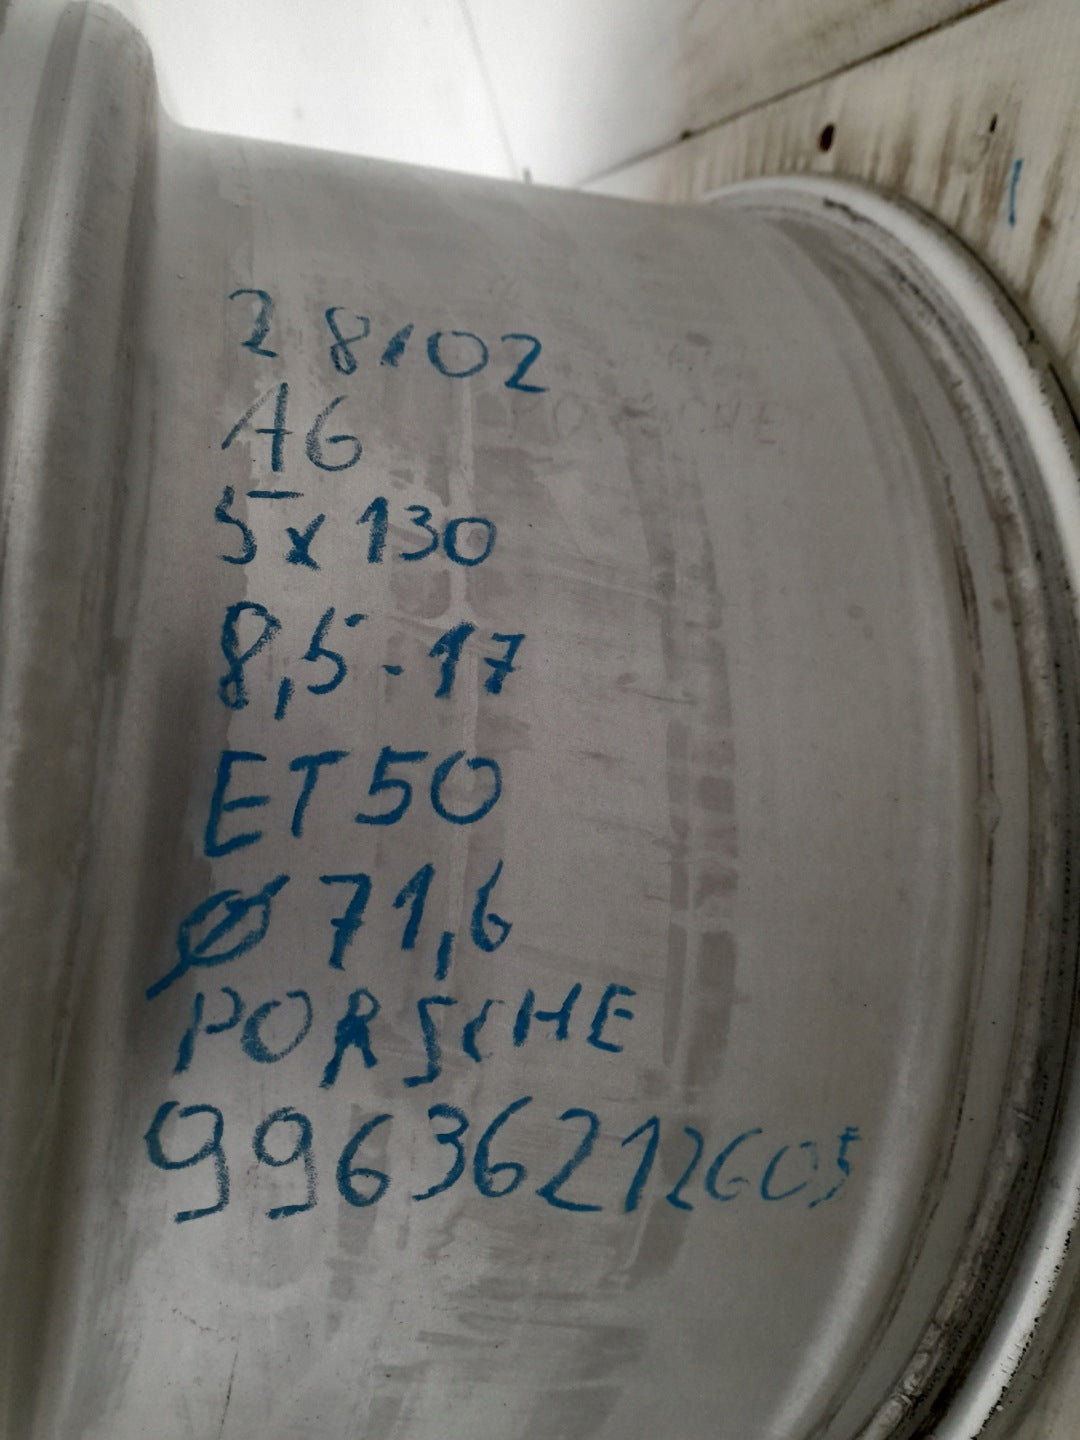 28102
A6
5x130
8,5-17
ET50
Ø 71,6
PORSCHE
99636212605